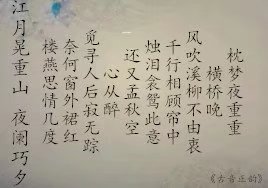 枕梦夜重重
横桥晚
风吹溪柳不由衷
千行相顾帘中
烛泪衾鸳此意
还又孟秋空
心从醉
觅寻人后寂无踪
奈何窗外裙红
楼燕思情几度
江月晃重山　夜阑巧夕